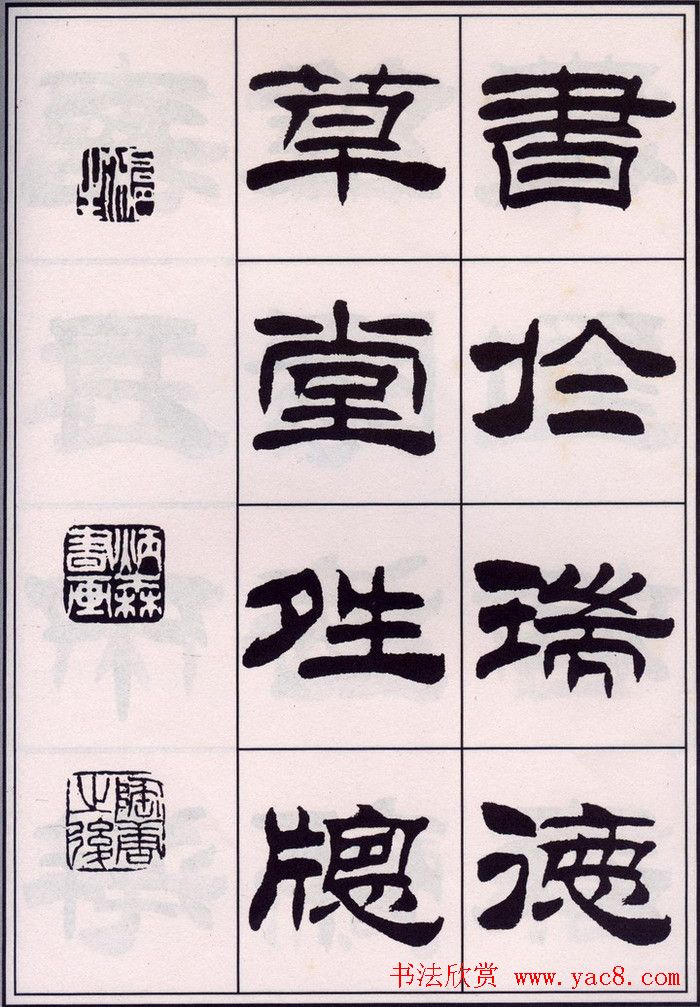 書於瑞德
草堂夝牕
炳森書画
陶唐之後
书法欣赏 www.yac8.com